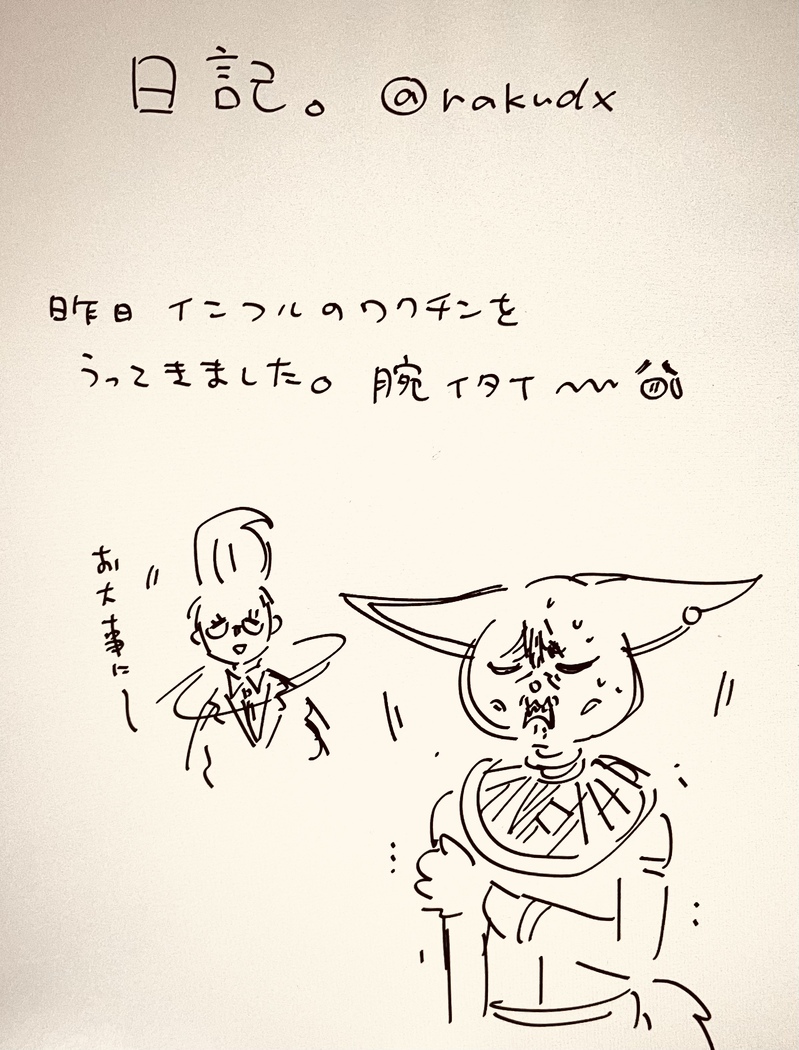 日記。 @rakudx
昨日 インフルのワクチンを
うってきました。 腕イタイ〰
お大事にー